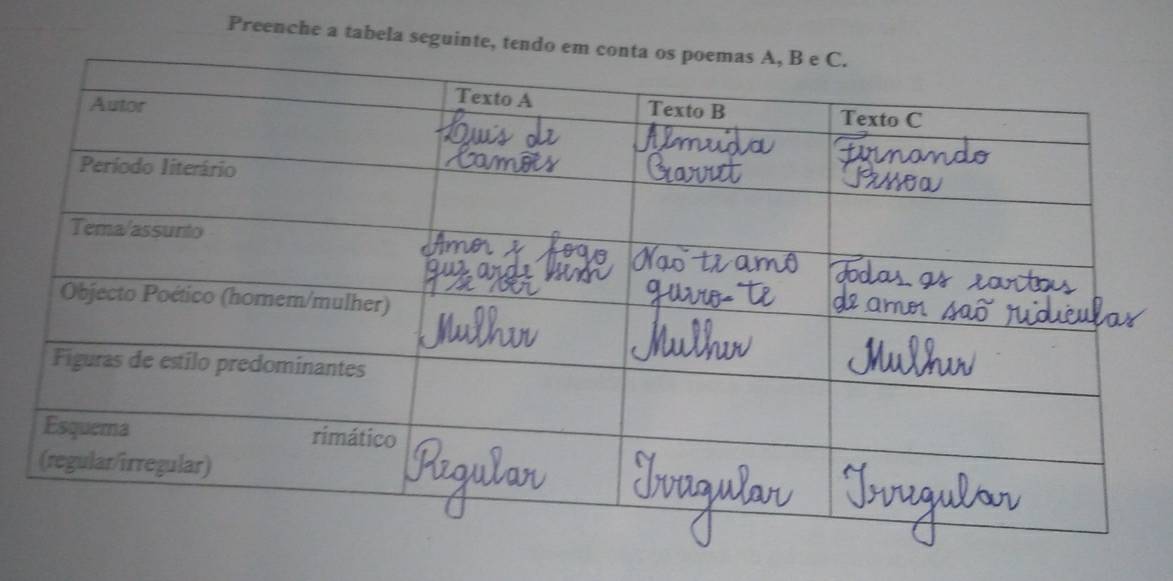 Preenche a tabela seguinte, tendo em conta os poemas A, B e C.
Texto A Texto B Texto C
Autor Luis de Camões Almeida Garret Fernando Pessoa
Período literário
Tema/assunto Amor é fogo que arde sem se ver Não te amo quero-te Todas as cartas de amor são ridiculas
Objecto Poético (homem/mulher) Mulher Mulher Mulher
Figuras de estilo predominantes
Esquema rimático (regular/irregular) Regular Irregular Irregular